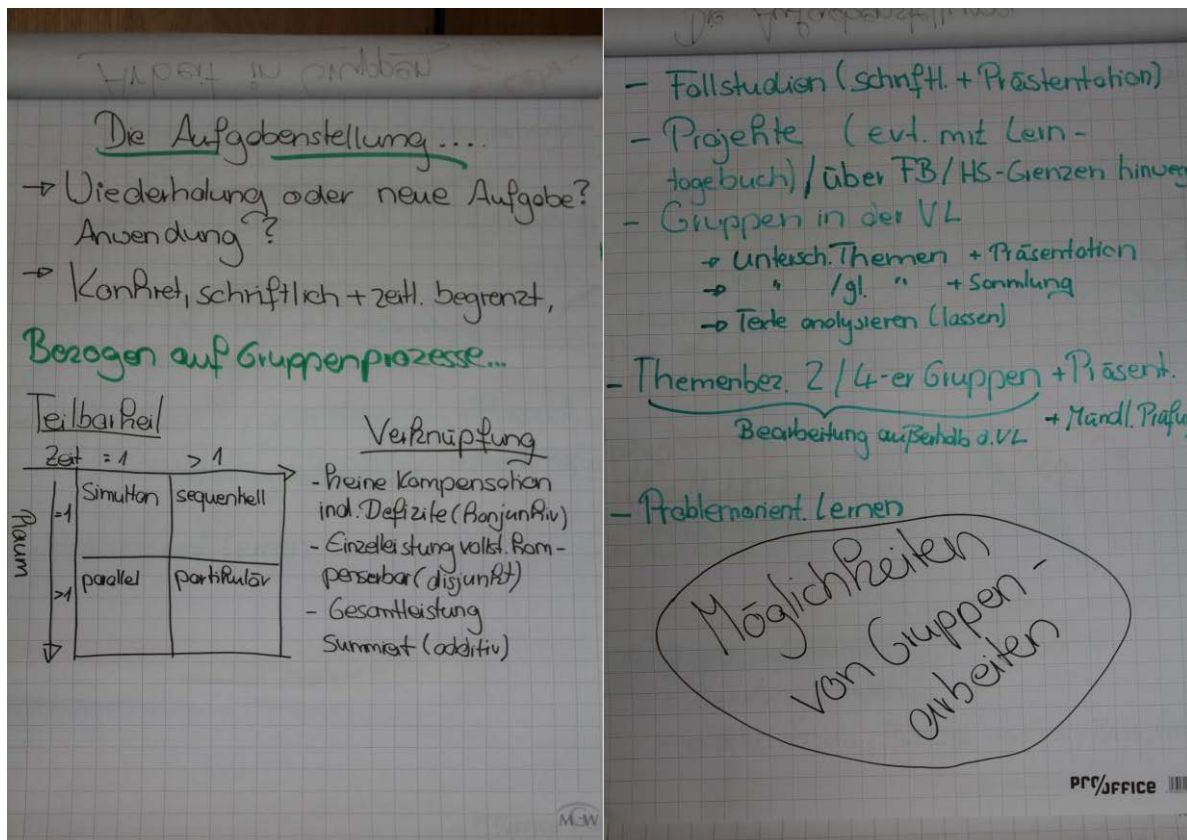 Die Aufgabenstellung....
→ Wiederholung oder neue Aufgabe?
Anwendung?
→ Konkret, schriftlich + zeitl. begrenzt,
Bezogen auf Gruppenprozesse...
Teilbarkeit
Zeit =1 >1
Raum
=1 Simultan sequentiell
>1 parallel partikulär
Verknüpfung
- keine Kompensation
ind. Defizite (konjunktiv)
- Einzelleistung vollst. kom-
penserbar (disjunkt)
- Gesamtleistung
Summiert (additiv)
MGW
- Fallstudien (schriftl. + Prästentation)
- Projekte (evt. mit Lern-
tagebuch) / über FB/HS-Grenzen hinweg
- Gruppen in der VL
→ untersch. Themen + Präsentation
→ " /gl. " + Sammlung
→ Texte analysieren (lassen)
- Themenbez. 2/4-er Gruppen + Präsent.
Bearbeitung außerhalb d. VL + Mündl. Prüfu
- Problemorient. Lernen
Möglichkeiten
von Gruppen-
arbeiten
PRO/OFFICE